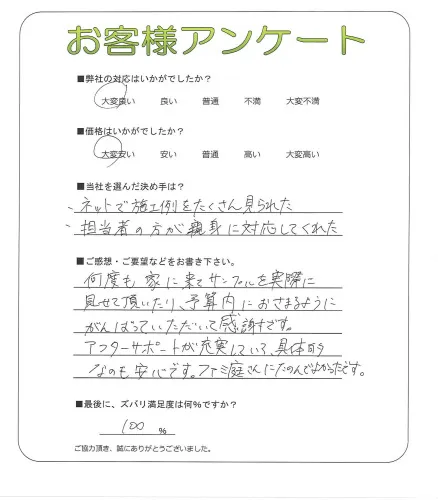 お客様アンケート
■弊社の対応はいかがでしたか？
大変良い 良い 普通 不満 大変不満
■価格はいかがでしたか？
大変安い 安い 普通 高い 大変高い
■当社を選んだ決め手は？
、ネットで施工例をたくさん見られた
、担当者の方が親身に対応してくれた
■ご感想・ご要望などをお書き下さい。
何度も家に来てサンプルを実際に
見せて頂いたり、予算内におさまるように
がんばっていただいて感謝です。
アフターサポートが充実していて、具体的
なのも安心です。ファミ庭さんにたのんでよかったです。
■最後に、ズバリ満足度は何％ですか？
100 %
ご協力頂き、誠にありがとうございました。